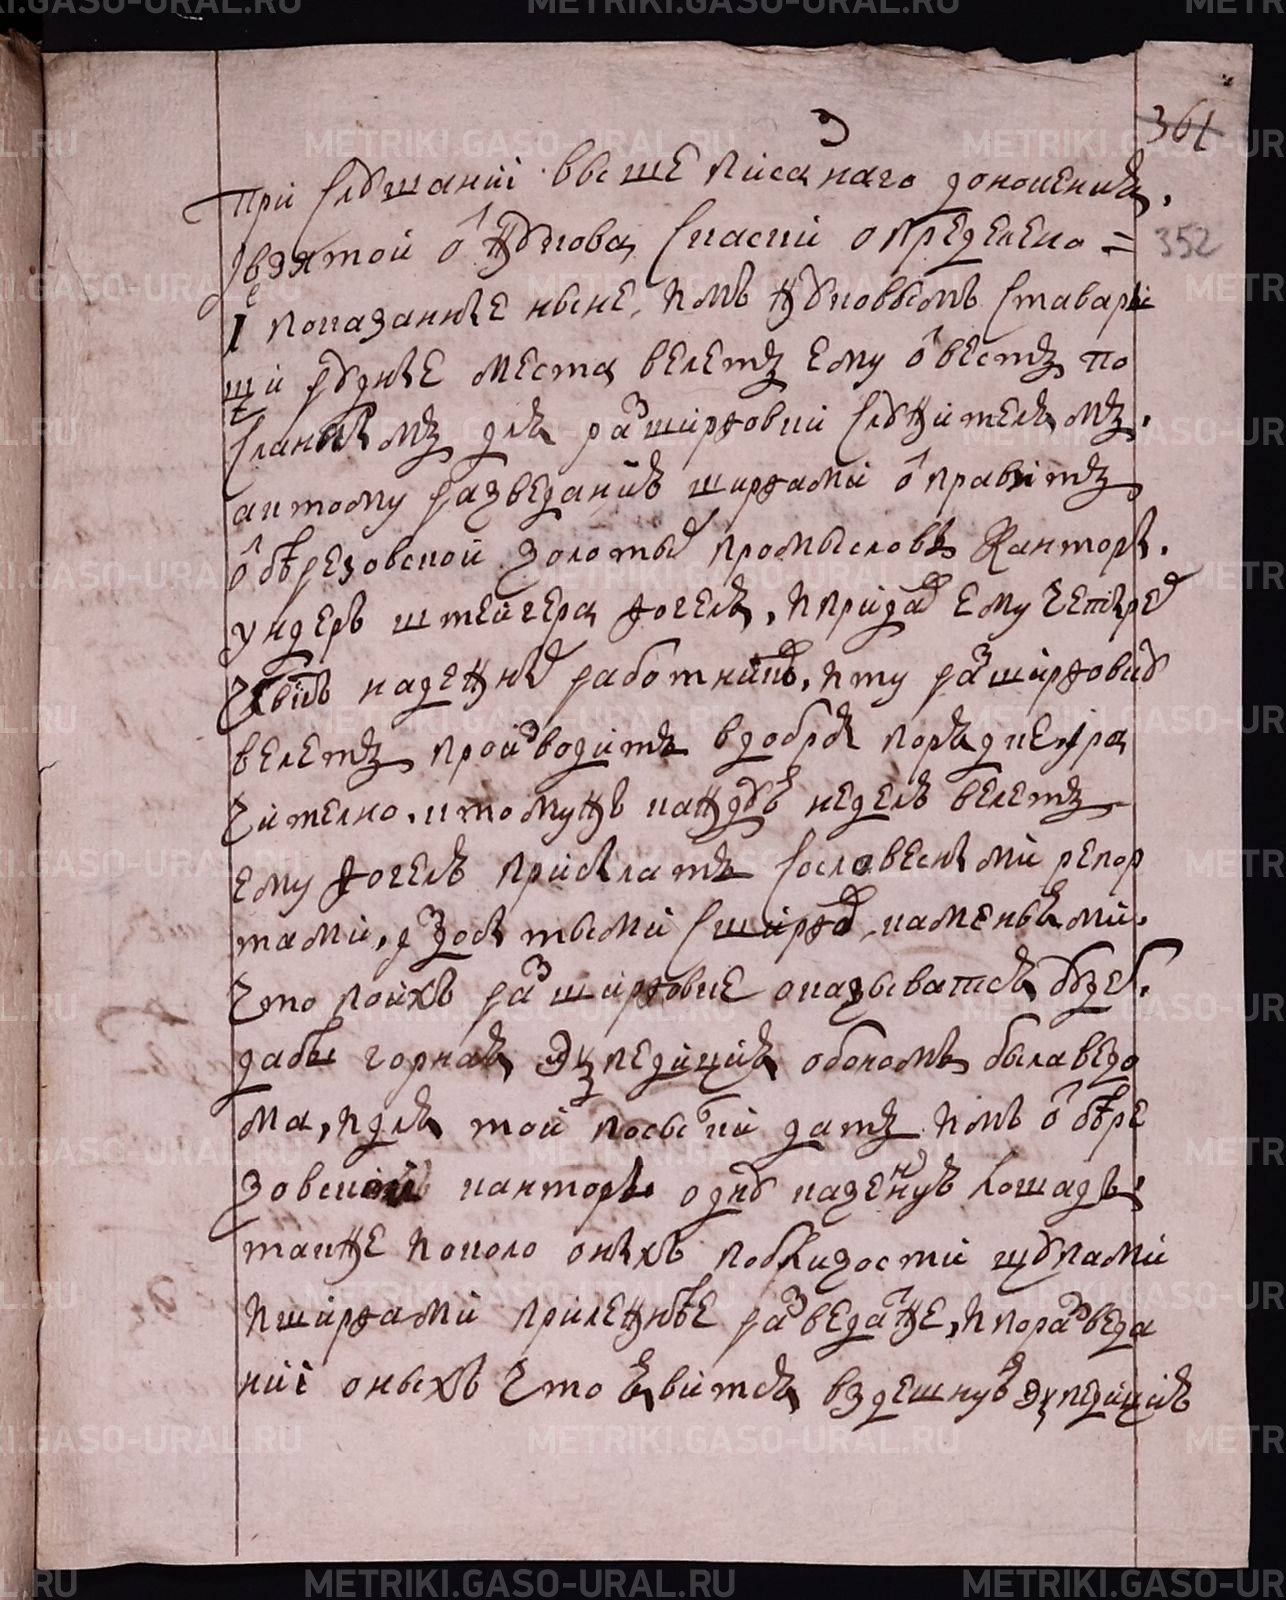 361
352
При слушаниі вышеписанаго доношения,
взятой о Жукова скаски определено =
1 показанные ныне, имъ Жуковымъ ставары
щи рудные места велеть ему отвесть по
сланнымъ для разшифровки служителямъ.
а к тому разведанию шурфами отправить
от березовской золотых промысловъ канторы.
ундеръ штейгера Фогеля, и придать ему четырех
человекъ надежных работниковъ, и ту разшурфовку
велеть производить в добром порятке, и ра
чително, и к тому жъ кажду неделю велеть
ему Фогелю присылать со словесными репор
тами, и взятыми с шурфов каменьями.
что по ихъ разшурфовке оказыватся будет.
дабы горная экспедиция о бономъ была ведо
ма, и для той посылки дать имъ от бере
зовской канторы одну казенную лошадь.
также и около оныхъ по близости щупами
и шурфами прилежнее разведать же, и по разведа
ниі оныхъ что явится, в здешную экспедицию